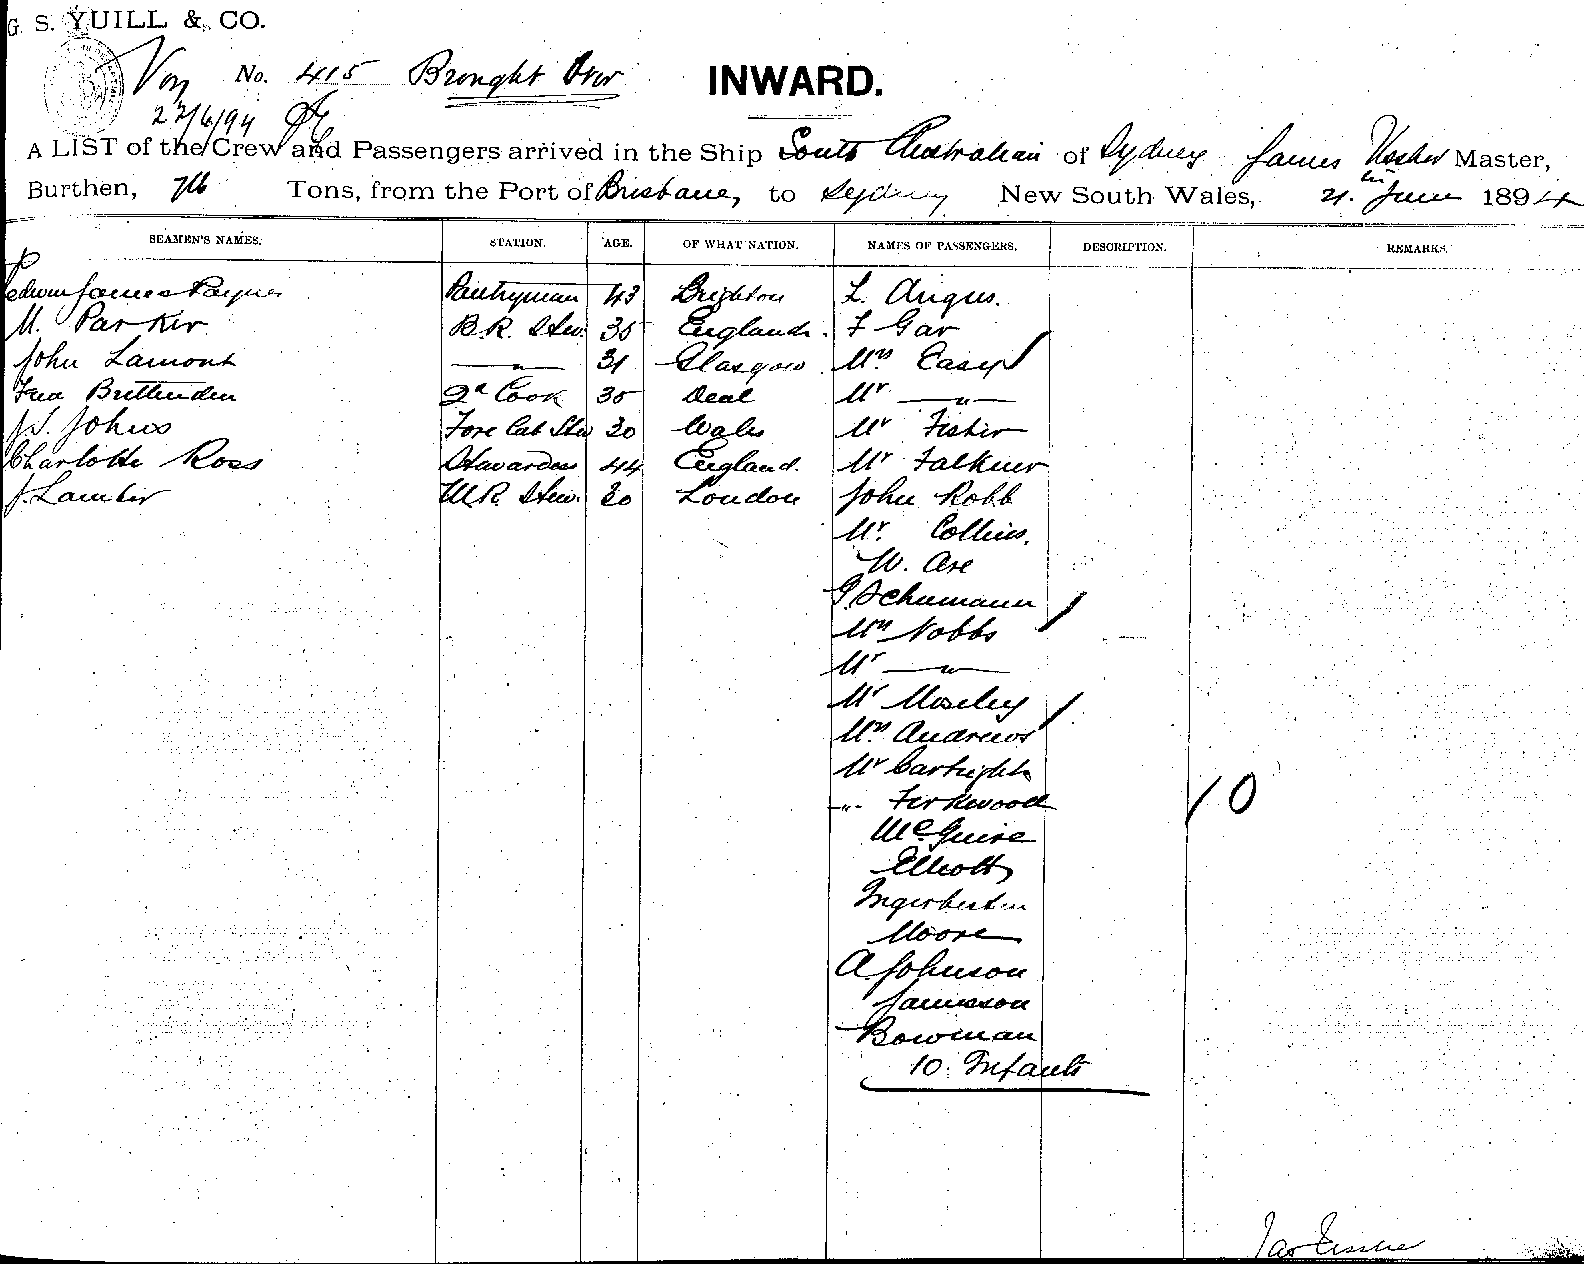 G. S. YUILL & CO.
Voy No. 415 Brought Over INWARD.
22/6/94
A LIST of the Crew and Passengers arrived in the Ship South Australian of Sydney James Ussher Master,
Burthen, 716 Tons, from the Port of Brisbane, to Sydney New South Wales, 21. June 1894
SEAMEN'S NAMES. STATION. AGE. OF WHAT NATION. NAMES OF PASSENGERS. DESCRIPTION. REMARKS.
Edwin James Payne Pantryman 43 Brighton L. Angus.
M. Parker B.R. Stew. 35 England. F Gar
John Lamont —"— 31 Glasgow Mrs Easy
Fred Bruttenden 2d Cook 35 Deal Mr —"—
W. Johns Fore Cab Stew 20 Wales Mr Fisher
Charlotte Ross Stewardess 44 England. Mr Falkner
J. Lambir M.R. Stew. 20 London John Robb
Mr. Collins.
W. Are
G. Schumann
Mrs Nobbs
Mr —"—
Mr Moseley
Mrs Andrews
Mr Cartright
-"- Firkwood 10
McGuire
Elliott
Moore
A. Johnson
Jamieson
Bowman
10. Infants
Jas Ussher